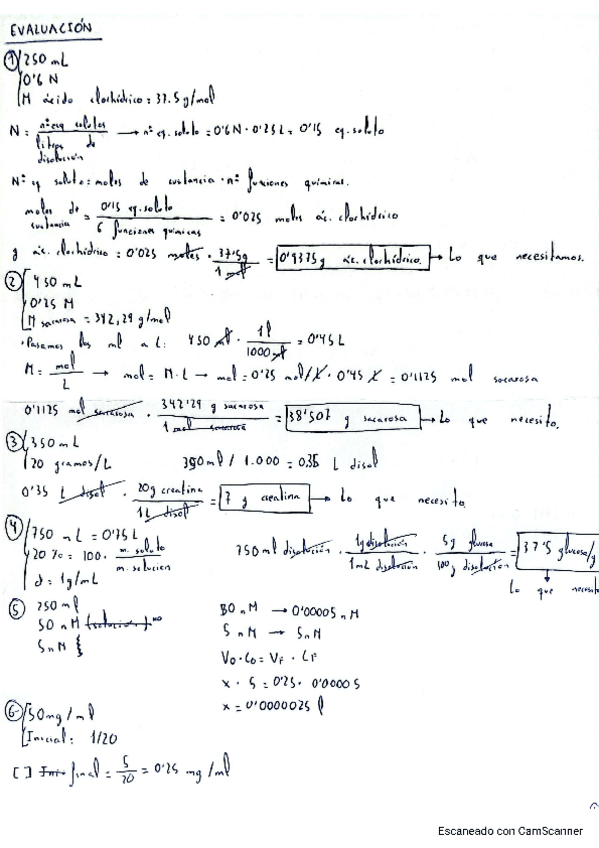 EVALUACIÓN
① 250 mL
0'6 N
M ácido clorhídrico = 37.5 g/mol
N = nº eq solutos / litros de disolución → nº eq. soluto = 0'6 N · 0'25 L = 0'15 eq. soluto
Nº eq soluto = moles de sustancia · nº funciones químicas.
moles de sustancia = 0'15 eq. soluto / 6 funciones químicas = 0'025 moles ác. clorhídrico
g ác. clorhídrico = 0'025 moles · 37'5g / 1 mol = 0'9375g ác. clorhídrico. → Lo que necesitamos.
② 450 mL
0'25 M
M sacarosa = 342,29 g/mol
· Pasamos los ml a L: 450 ml · 1 l / 1000 ml = 0'45 L
M = mol / L → mol = M · L → mol = 0'25 mol/L · 0'45 L = 0'1125 mol sacarosa
0'1125 mol sacarosa · 342'29 g sacarosa / 1 mol sacarosa = 38'507 g sacarosa → Lo que necesito.
③ 350 mL
20 gramos/L 350 ml / 1.000 = 0.35 L disol
0'35 L disol · 20g creatina / 1L disol = 7 g creatina → Lo que necesito.
④ 750 mL = 0'75 L
20 % = 100 · m. soluto / m. solucion 750 ml disolución · 1g disolución / 1 mL disolución · 5g glucosa / 100g disolución = 37'5 glucosa/g
d = 1g/mL Lo que
⑤ 250 ml 50 nM → 0'00005 nM
50 nM NO
5 nM 5 nM → 5 nM
V0 · C0 = VF · CF
x · 5 = 0'25 · 0'00005
x = 0'0000025 l
⑥ 50mg/ml
Inicial: 1/20
[ ] final = 5/20 = 0'25 mg/ml
Escaneado con CamScanner